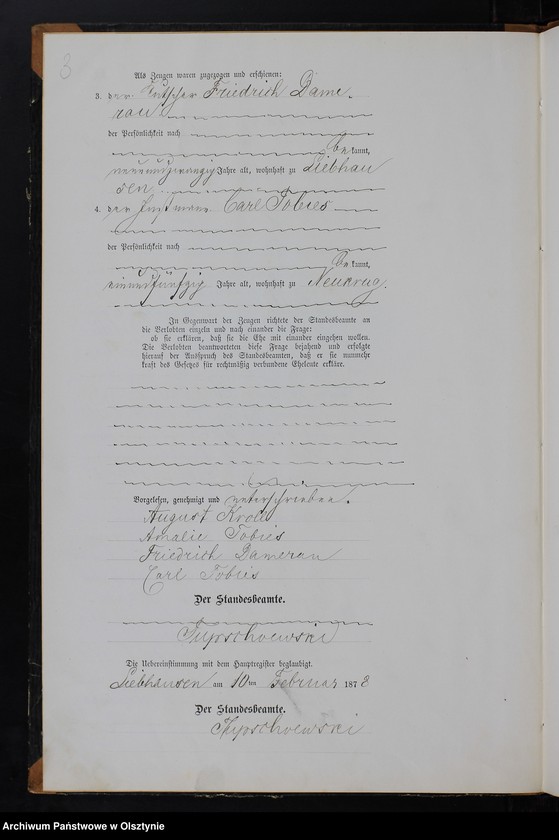 3
Als Zeugen waren zugezogen und erschienen:
3. der Kutscher Friedrich Dame-
rau
der Persönlichkeit nach
be kannt,
neunundzwanzig Jahre alt, wohnhaft zu Liebhau
sen
4. der Instmann Carl Tobies
der Persönlichkeit nach
be kannt,
einundfünfzig Jahre alt, wohnhaft zu Neukrug.
In Gegenwart der Zeugen richtete der Standesbeamte an
die Verlobten einzeln und nach einander die Frage:
ob sie erklären, daß sie die Ehe mit einander eingehen wollen.
Die Verlobten beantworteten diese Frage bejahend und erfolgte
hierauf der Ausspruch des Standesbeamten, daß er sie nunmehr
kraft des Gesetzes für rechtmäßig verbundene Eheleute erkläre.
Vorgelesen, genehmigt und unterschrieben.
August Kroll
Amalie Tobies
Friedrich Damerau
Carl Tobies
Der Standesbeamte.
Die Uebereinstimmung mit dem Hauptregister beglaubigt.
Liebhausen am 10 ten Februar 1878
Der Standesbeamte.
Archiwum Państwowe w Olsztynie